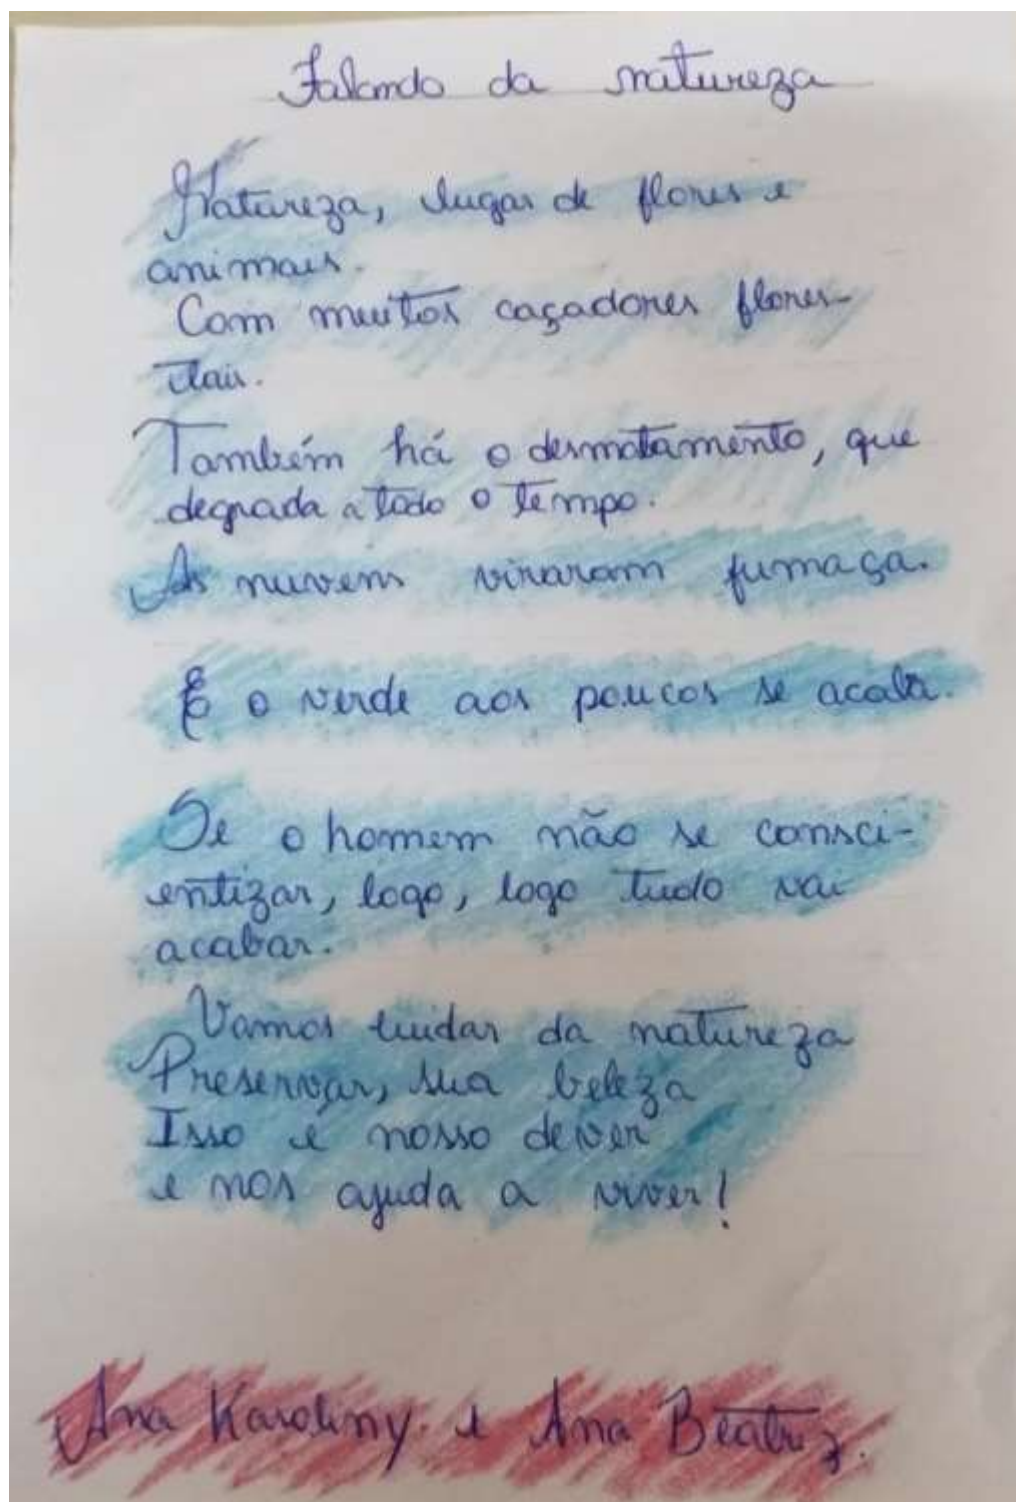 Falando da natureza
Natureza, lugar de flores e
animais.
Com muitos caçadores flores-
tais.
Também há o desmatamento, que
degrada a todo o tempo.
As nuvens viraram fumaça.
E o verde aos poucos se acaba.
Se o homem não se consci-
entizar, logo, logo tudo vai
acabar.
Vamos cuidar da natureza
Preservar, sua beleza
Isso é nosso dever
e nos ajuda a viver!
Ana Karoliny e Ana Beatriz.